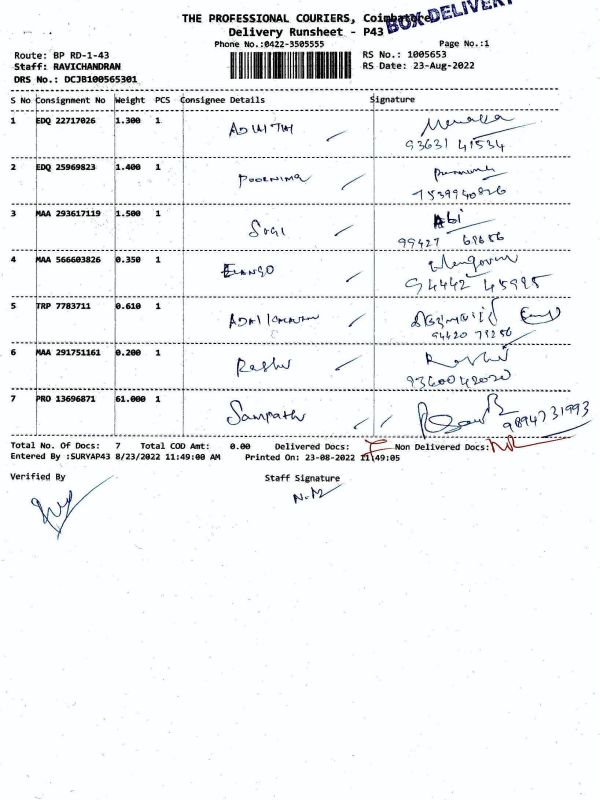 THE PROFESSIONAL COURIERS, Coimbatore
BOX DELIVERY
Delivery Runsheet - P43
Phone No.:0422-3505555
Page No.:1
Route: BP RD-1-43
RS No.: 1005653
Staff: RAVICHANDRAN
RS Date: 23-Aug-2022
DRS No.: DCJB100565301
S No Consignment No Weight PCS Consignee Details Signature
1 EDQ 22717026 1.300 1
93631 41534
2 EDQ 25969823 1.400 1 POORNIMA
7539940826
3 MAA 293617119 1.500 1 Sogi Abi
99427 68656
4 MAA 566603826 0.350 1 ELANGO Elangovan
94442 45995
5 TRP 7783711 0.610 1
94420 75256
6 MAA 291751161 0.200 1
9360042020
7 PRO 13696871 61.000 1 Sampath
9894731993
Total No. Of Docs: 7 Total COD Amt: 0.00 Delivered Docs: 7 Non Delivered Docs: Nil
Entered By :SURYAP43 8/23/2022 11:49:00 AM Printed On: 23-08-2022 11:49:05
Verified By Staff Signature